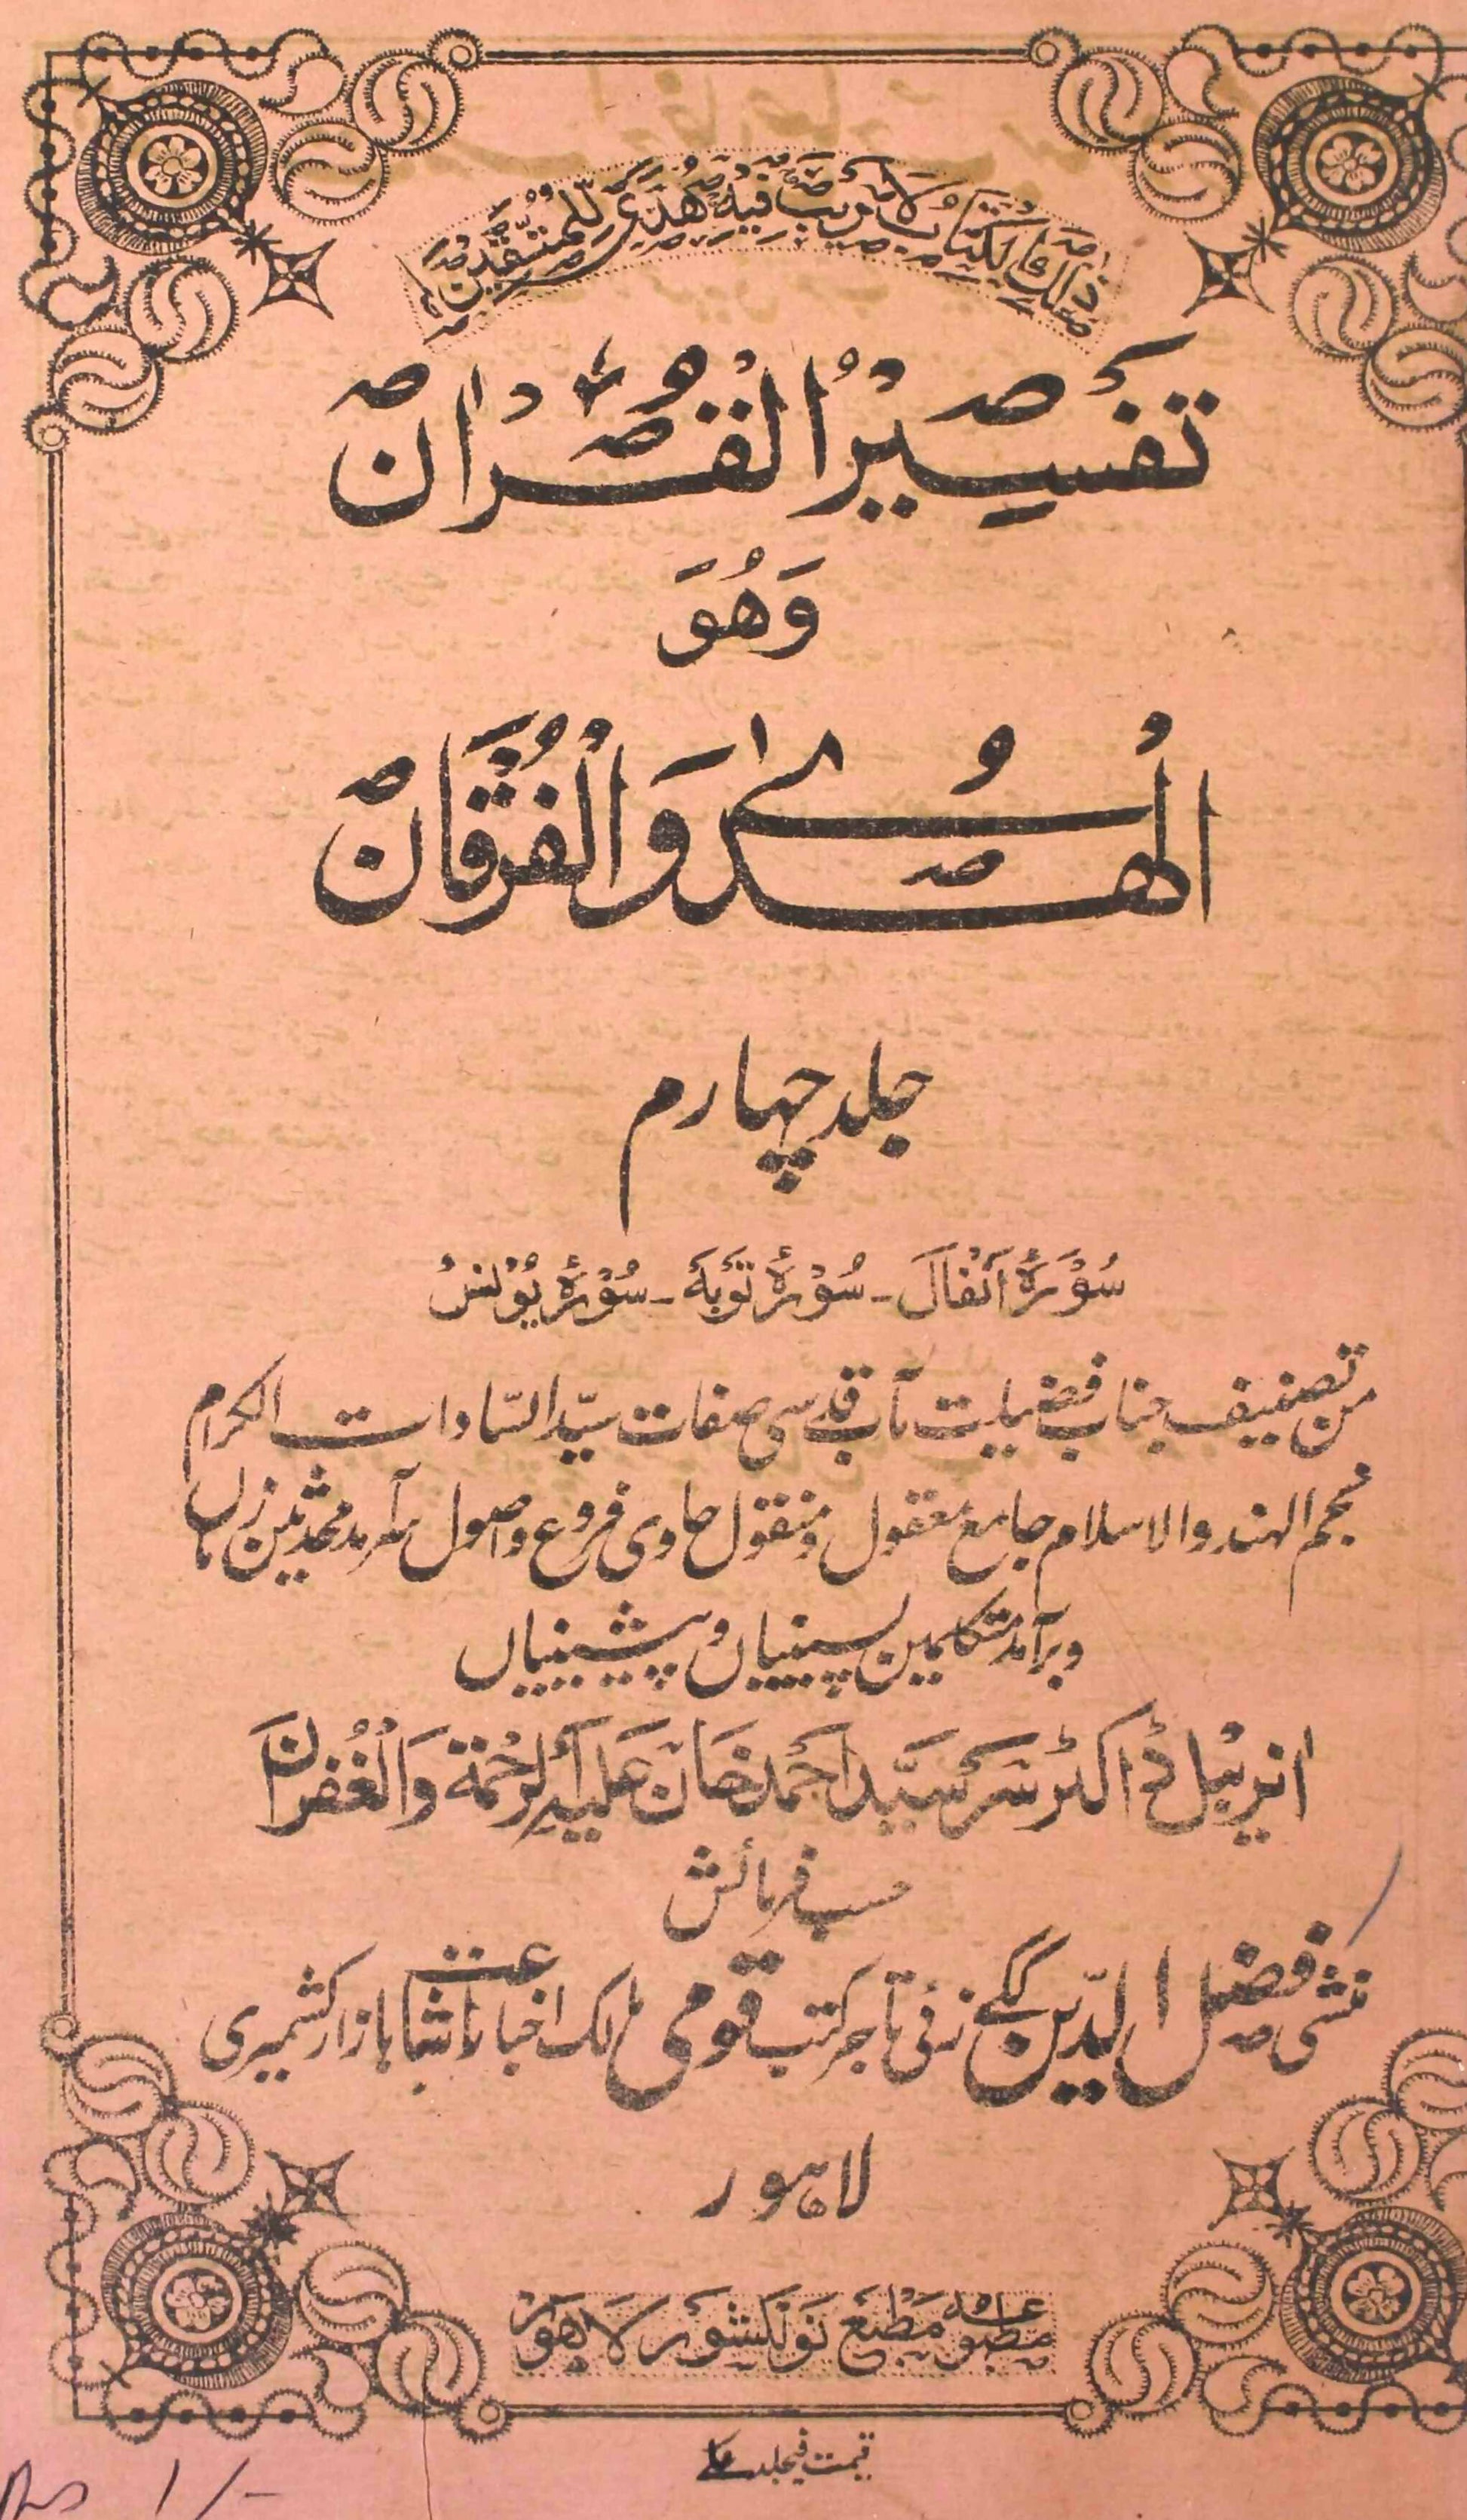 ذٰلِكَ الْكِتَابُ لَا رَيْبَ فِيْهِ هُدًى لِّلْمُتَّقِيْنَ
تَفْسِيْرُ الْقُرْاٰن
وَهُوَ
الْهُدٰے وَالْفُرْقَان
جلد چہارم
سُوْرَۂ اَنْفَالَ - سُوْرَۂ تَوْبَۃ - سُوْرَۂ يُوْنسْ
من تصنیف جناب فضیلت مآب قدسی صفات سیّد السّادات الکرام
نجم الہند والاسلام جامع معقول و منقول حاوی فروع و اصول سرآمد محدثین زماں
و برآمد متکلمین پسینیاں و پیشینیاں
انریبل ڈاکٹر سَر سَیَّد اَحْمَد خَان عَلَیہِ الرَّحْمَة وَالْغُفْرَان
حسب فرمائش
منشی فضل الدّین ککے زئی تاجر کتب قومی مالک اخبار اشاعت بازار کشمیری
لاہور
مطبوعہ مَطْبَع نَوَلکشَور لَاہَوْر
قیمت فیجلد
Rs 1/-